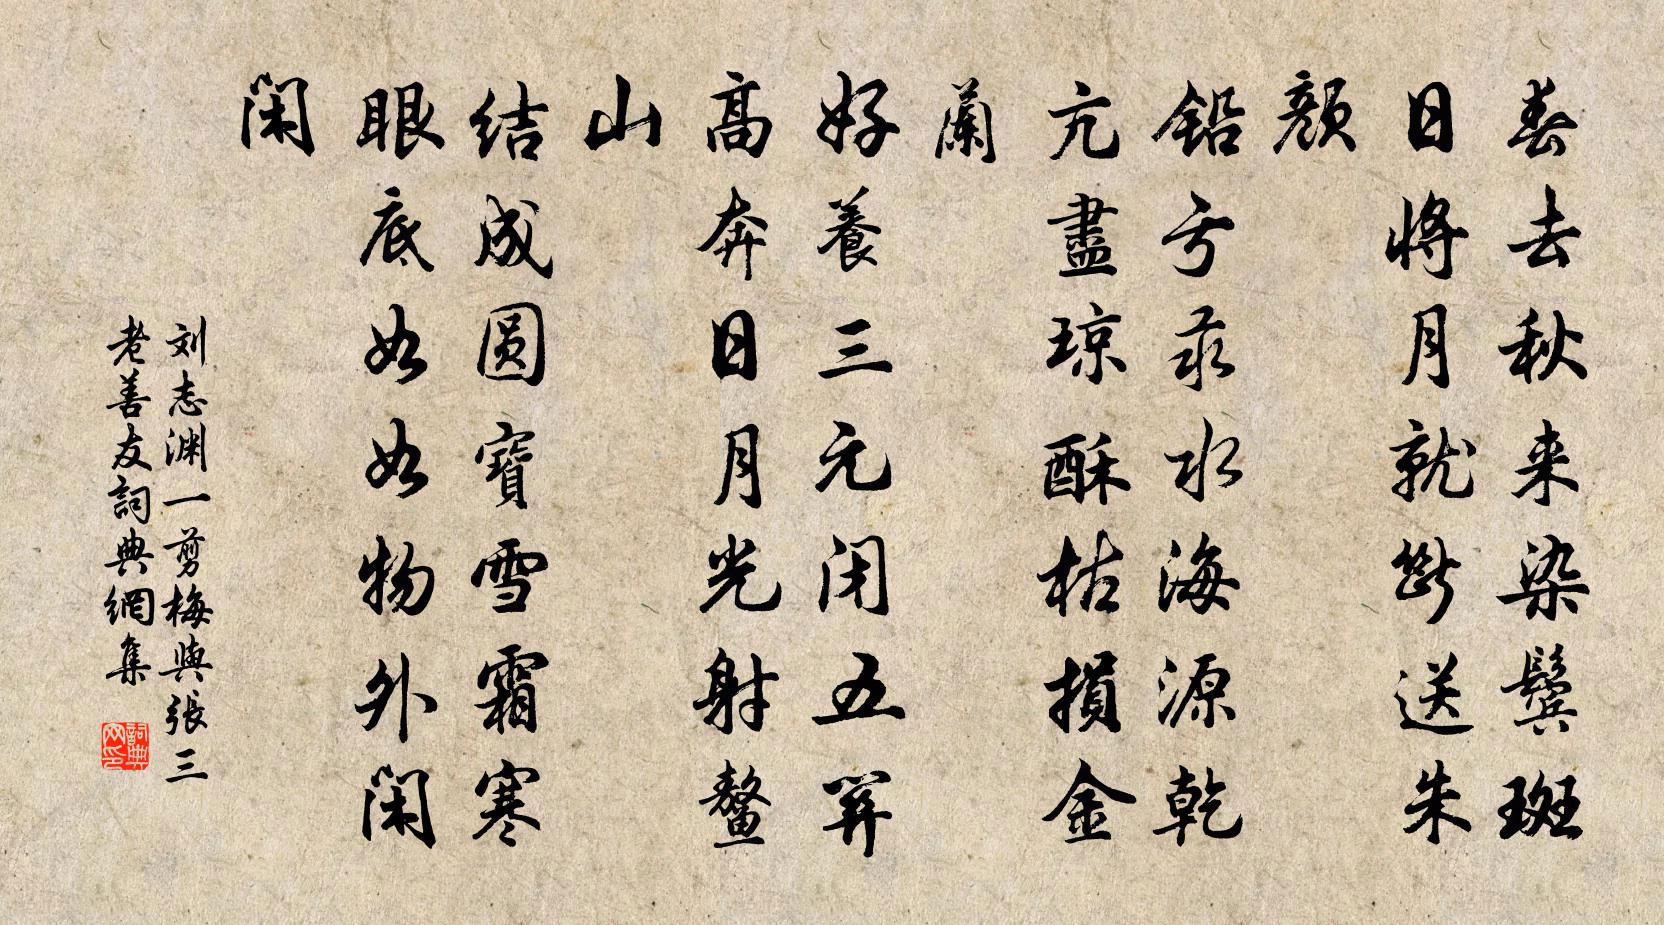 春去秋来染鬓斑
日将月就断送朱
颜
铅亏汞水海源乾
亢盡琼酥枯損金
蘭
好養三元闭五関
高奔日月光射鳌
山
结成圆寶雪霜寒
眼底如如物外闲
闲
刘志渊一剪梅與張三
老善友詞典網集
詞典网印